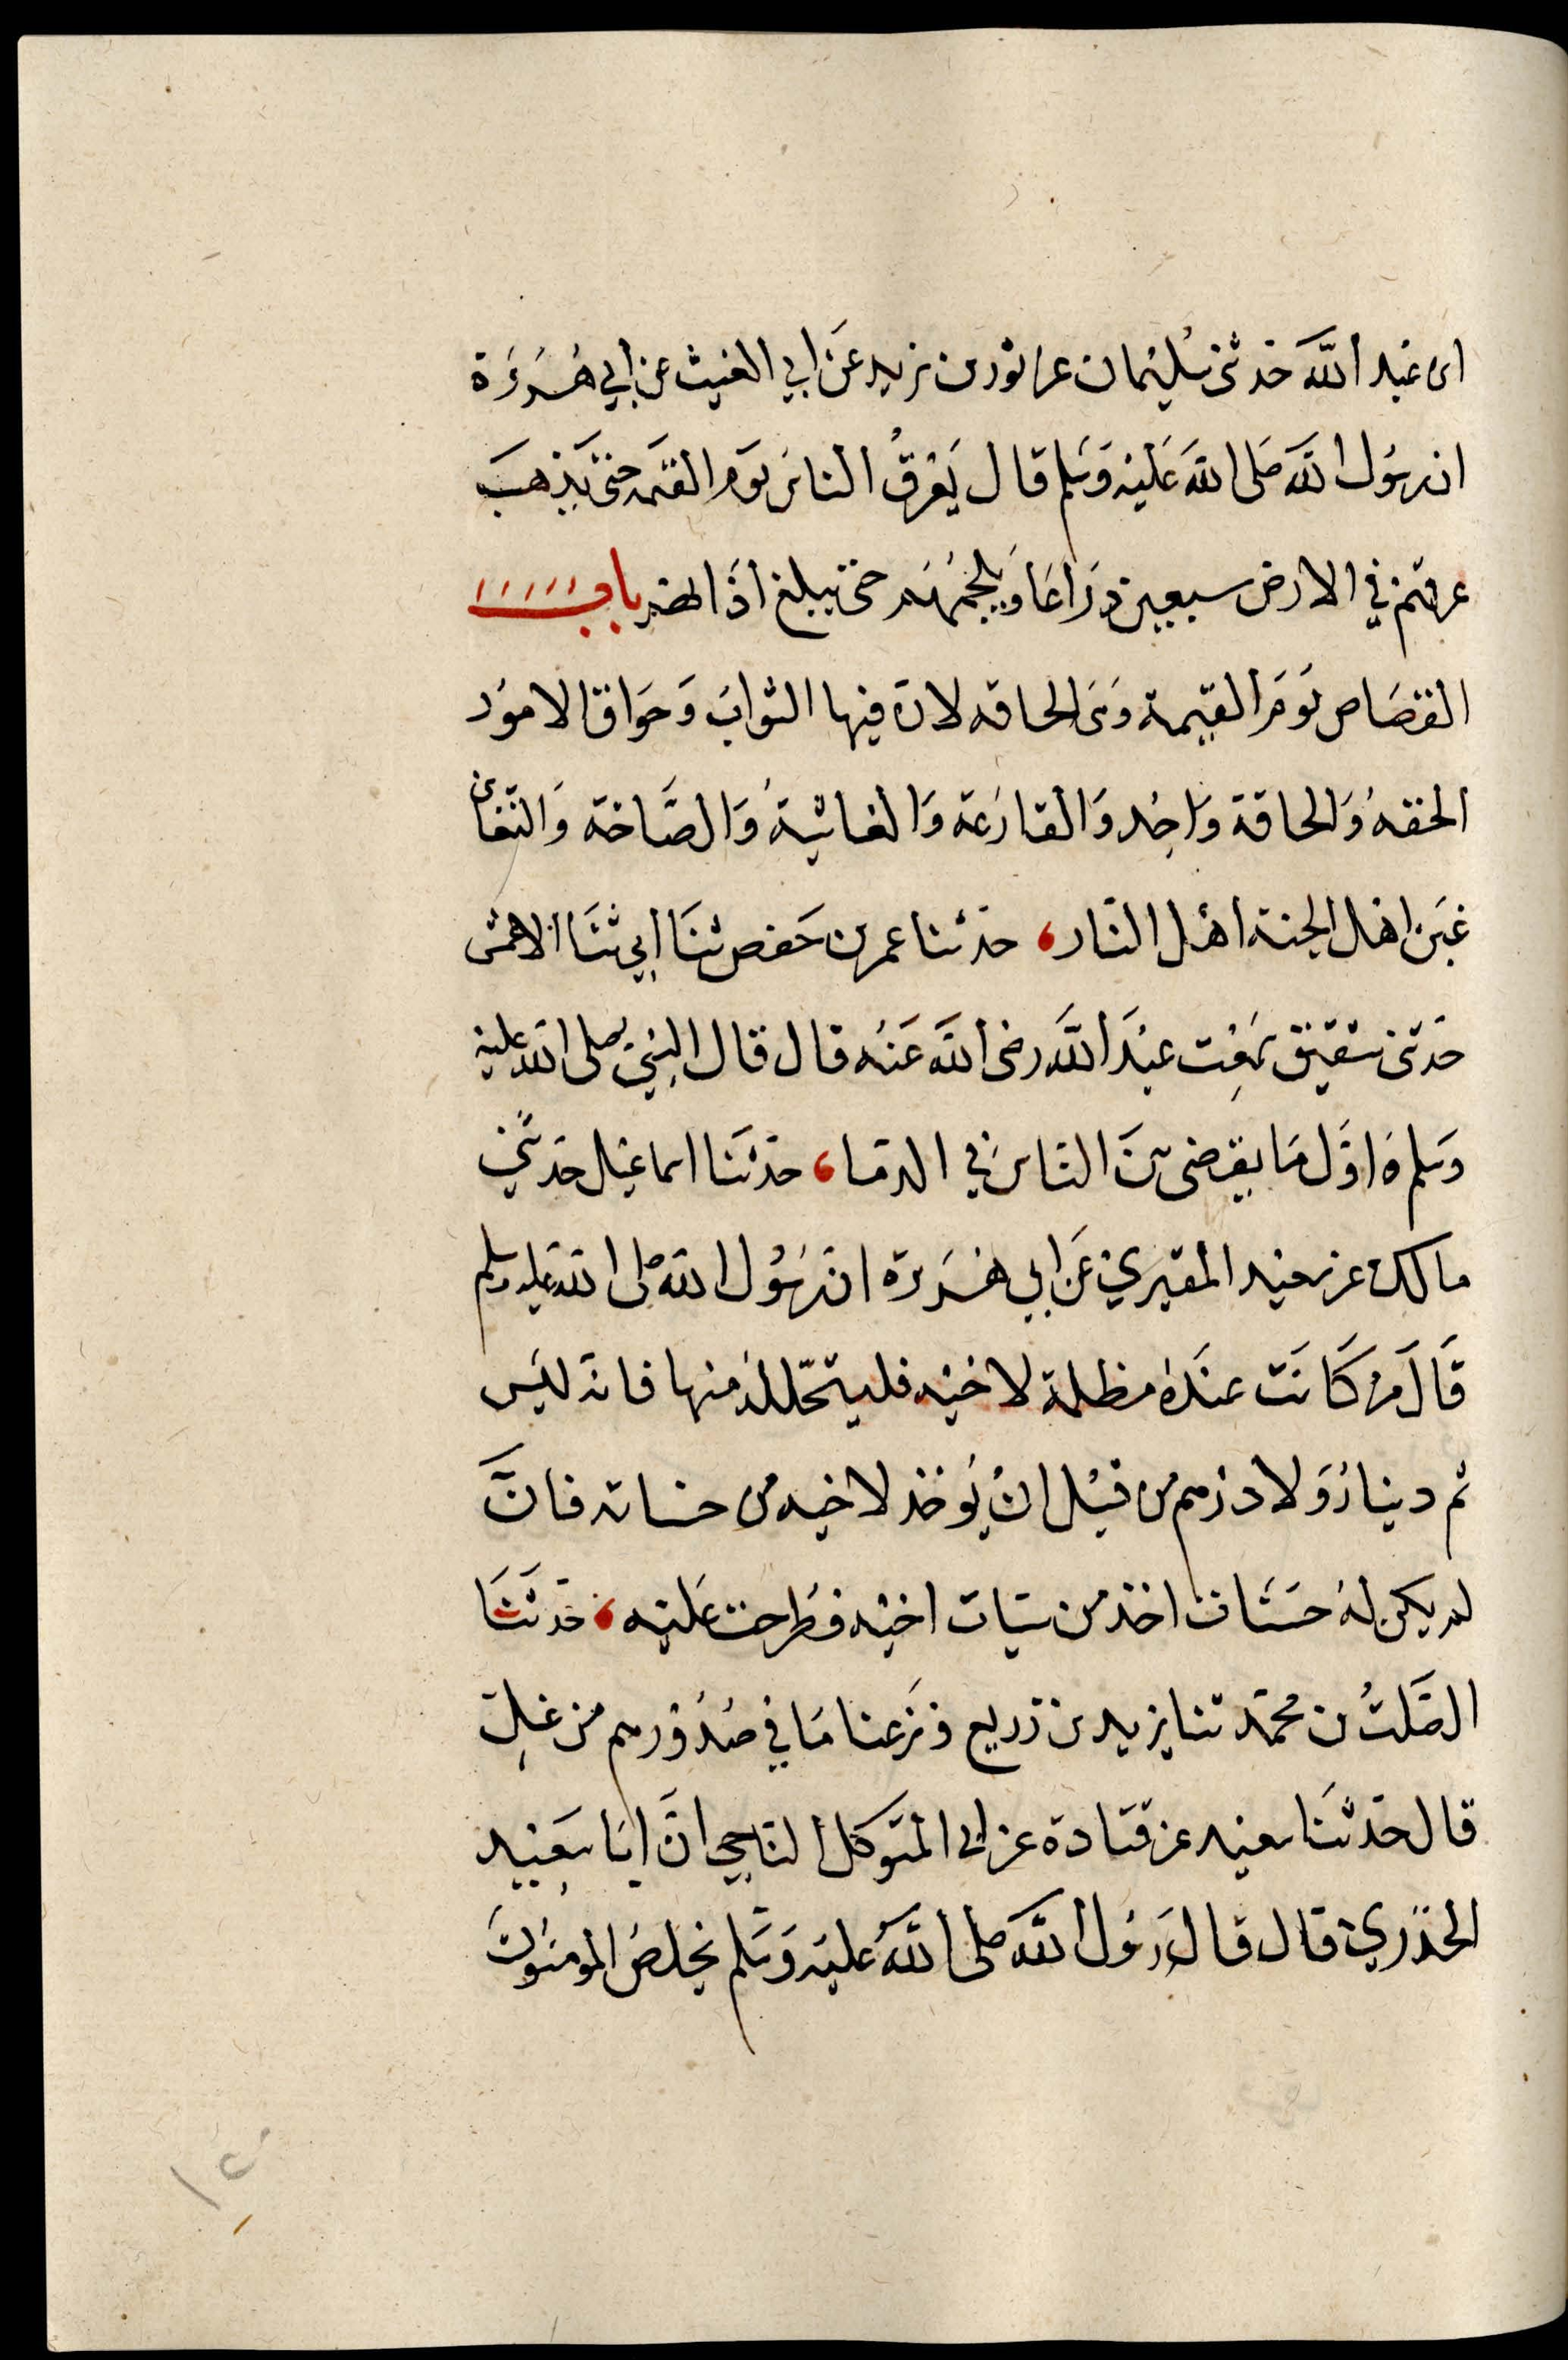 ابن عبد الله حدثني سليمان عن ثور بن زيد عن ابي الغيث عن ابي هُريرة
ان رسُول الله صَلى الله عَليْه وَسَلم قال يَعْرقُ الناس يَوم القيمه حتى يَذهبَ
عرقهم في الارض سبعين ذراعَا وَيلجمُهُم حتى يبلغ اذانهم باب
القصَاص يَومَ القيٰمة وَهى الحاقه لان فيها الثوابَ وَحوَاق الامور
الحقهُ وَالحاقة وَاحِد وَالقارعَة وَالغاشيةُ وَالصَّاخة وَالتغابن
غبَن اهل الجنة اهْل النَّار، حدثنا عمر بن حَفص ثنَا ابي ثنَا الاعمش
حَدثنى شقيق سَمِعْت عبْدَ الله رضى الله عَنْه قال قال النبيّ صلى الله عليه
وَسلم اوَّل مَا يقضى بينَ الناس في الدما، حَدثنَا اسماعيل حَدثني
مالك عن سعيد المقبري عَن ابي هُرَيرة انَّ رسُول الله صلى الله عليه وسلم
قَالَ من كَانَت عندَهُ مظلمة لاخيْه فليتحلله منها فانه ليَس
ثم دينارٌ وَلا درْهم من قبْل انْ يُوخذ لاخيه من حسناته فانَّ
لم يكن لهُ حسَنَات اخذ من سيّات اخيْه فطُرحت عَليْه، حَدثنَا
الصَّلتُ بن محمَّد ثنا يزيد بن زريع وَنزعنا مَا في صُدُورهم من غلٍّ
قال حَدثنَا سعيْد عن قتادة عن ابي المتوكل الناجي انَّ ابَا سَعِيْد
الخدْري قال قالَ رَسُول الله صلى الله عَليْه وَسَلم يخلصُ المومنُونَ
١٥